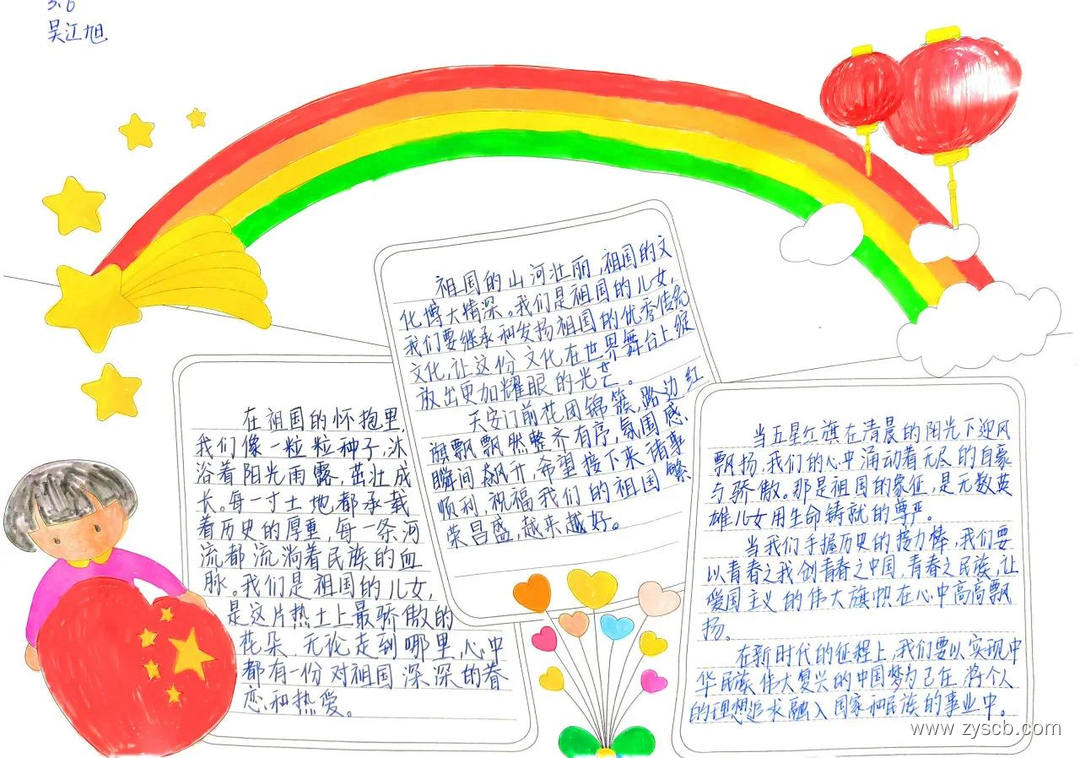 3.6
吴江旭
在祖国的怀抱里,
我们像一粒粒种子,沐
浴着阳光雨露,茁壮成
长。每一寸土地都承载
着历史的厚重,每一条河
流都流淌着民族的血
脉。我们是祖国的儿女,
是这片热土上最骄傲的
花朵。无论走到哪里,心中
都有一份对祖国深深的眷
恋和热爱。
祖国的山河壮丽,祖国的文
化博大精深。我们是祖国的儿女,
我们要继承和发扬祖国的优秀传统
文化,让这份文化在世界舞台上绽
放出更加耀眼的光芒。
天安门前花团锦簇,路边红
旗飘飘然整齐有序,氛围感
瞬间飙升,希望接下来诸事
顺利,祝福我们的祖国繁
荣昌盛,越来越好。
当五星红旗在清晨的阳光下迎风
飘扬,我们的心中涌动着无尽的自豪
与骄傲。那是祖国的象征,是无数英
雄儿女用生命铸就的尊严。
当我们手握历史的接力棒,我们要
以青春之我创青春之中国,青春之民族,让
爱国主义的伟大旗帜在心中高高飘
扬。
在新时代的征程上,我们要以实现中
华民族伟大复兴的中国梦为己任,将个人
的理想追求融入国家和民族的事业中。
www.zyscb.com